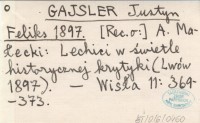 GAJSLER Justyn
Feliks 1897. [Rec. o:] A. Ma-
łecki: Lechici w świetle
historycznej krytyki (Lwów
1897). — Wisła 11: 364-
-373.